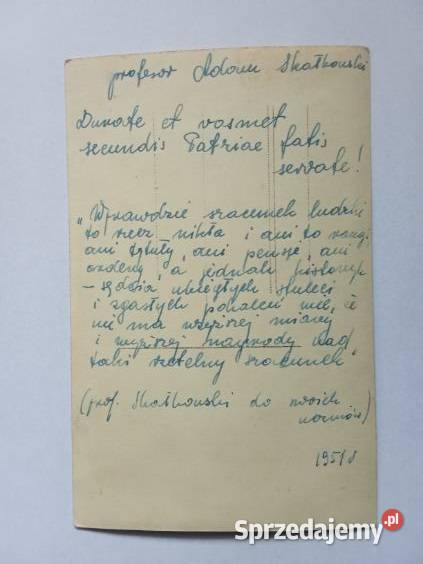 profesor Adam Skałkowski
Durate et vosmet
secundis Patriae fatis
servate!
„Wprawdzie szacunek ludzki
to rzecz nikła i ani to rangi
ani tytuły, ani pensje, ani
ordery, a jednak historyk
– sędzia ubiegłych stuleci
i zgasłych pokoleń wie, iż
nie ma wyższej miary
i wyższej nagrody nad
taki rzetelny szacunek"
(prof. Skałkowski do swoich
uczniów)
1951
Sprzedajemy.pl